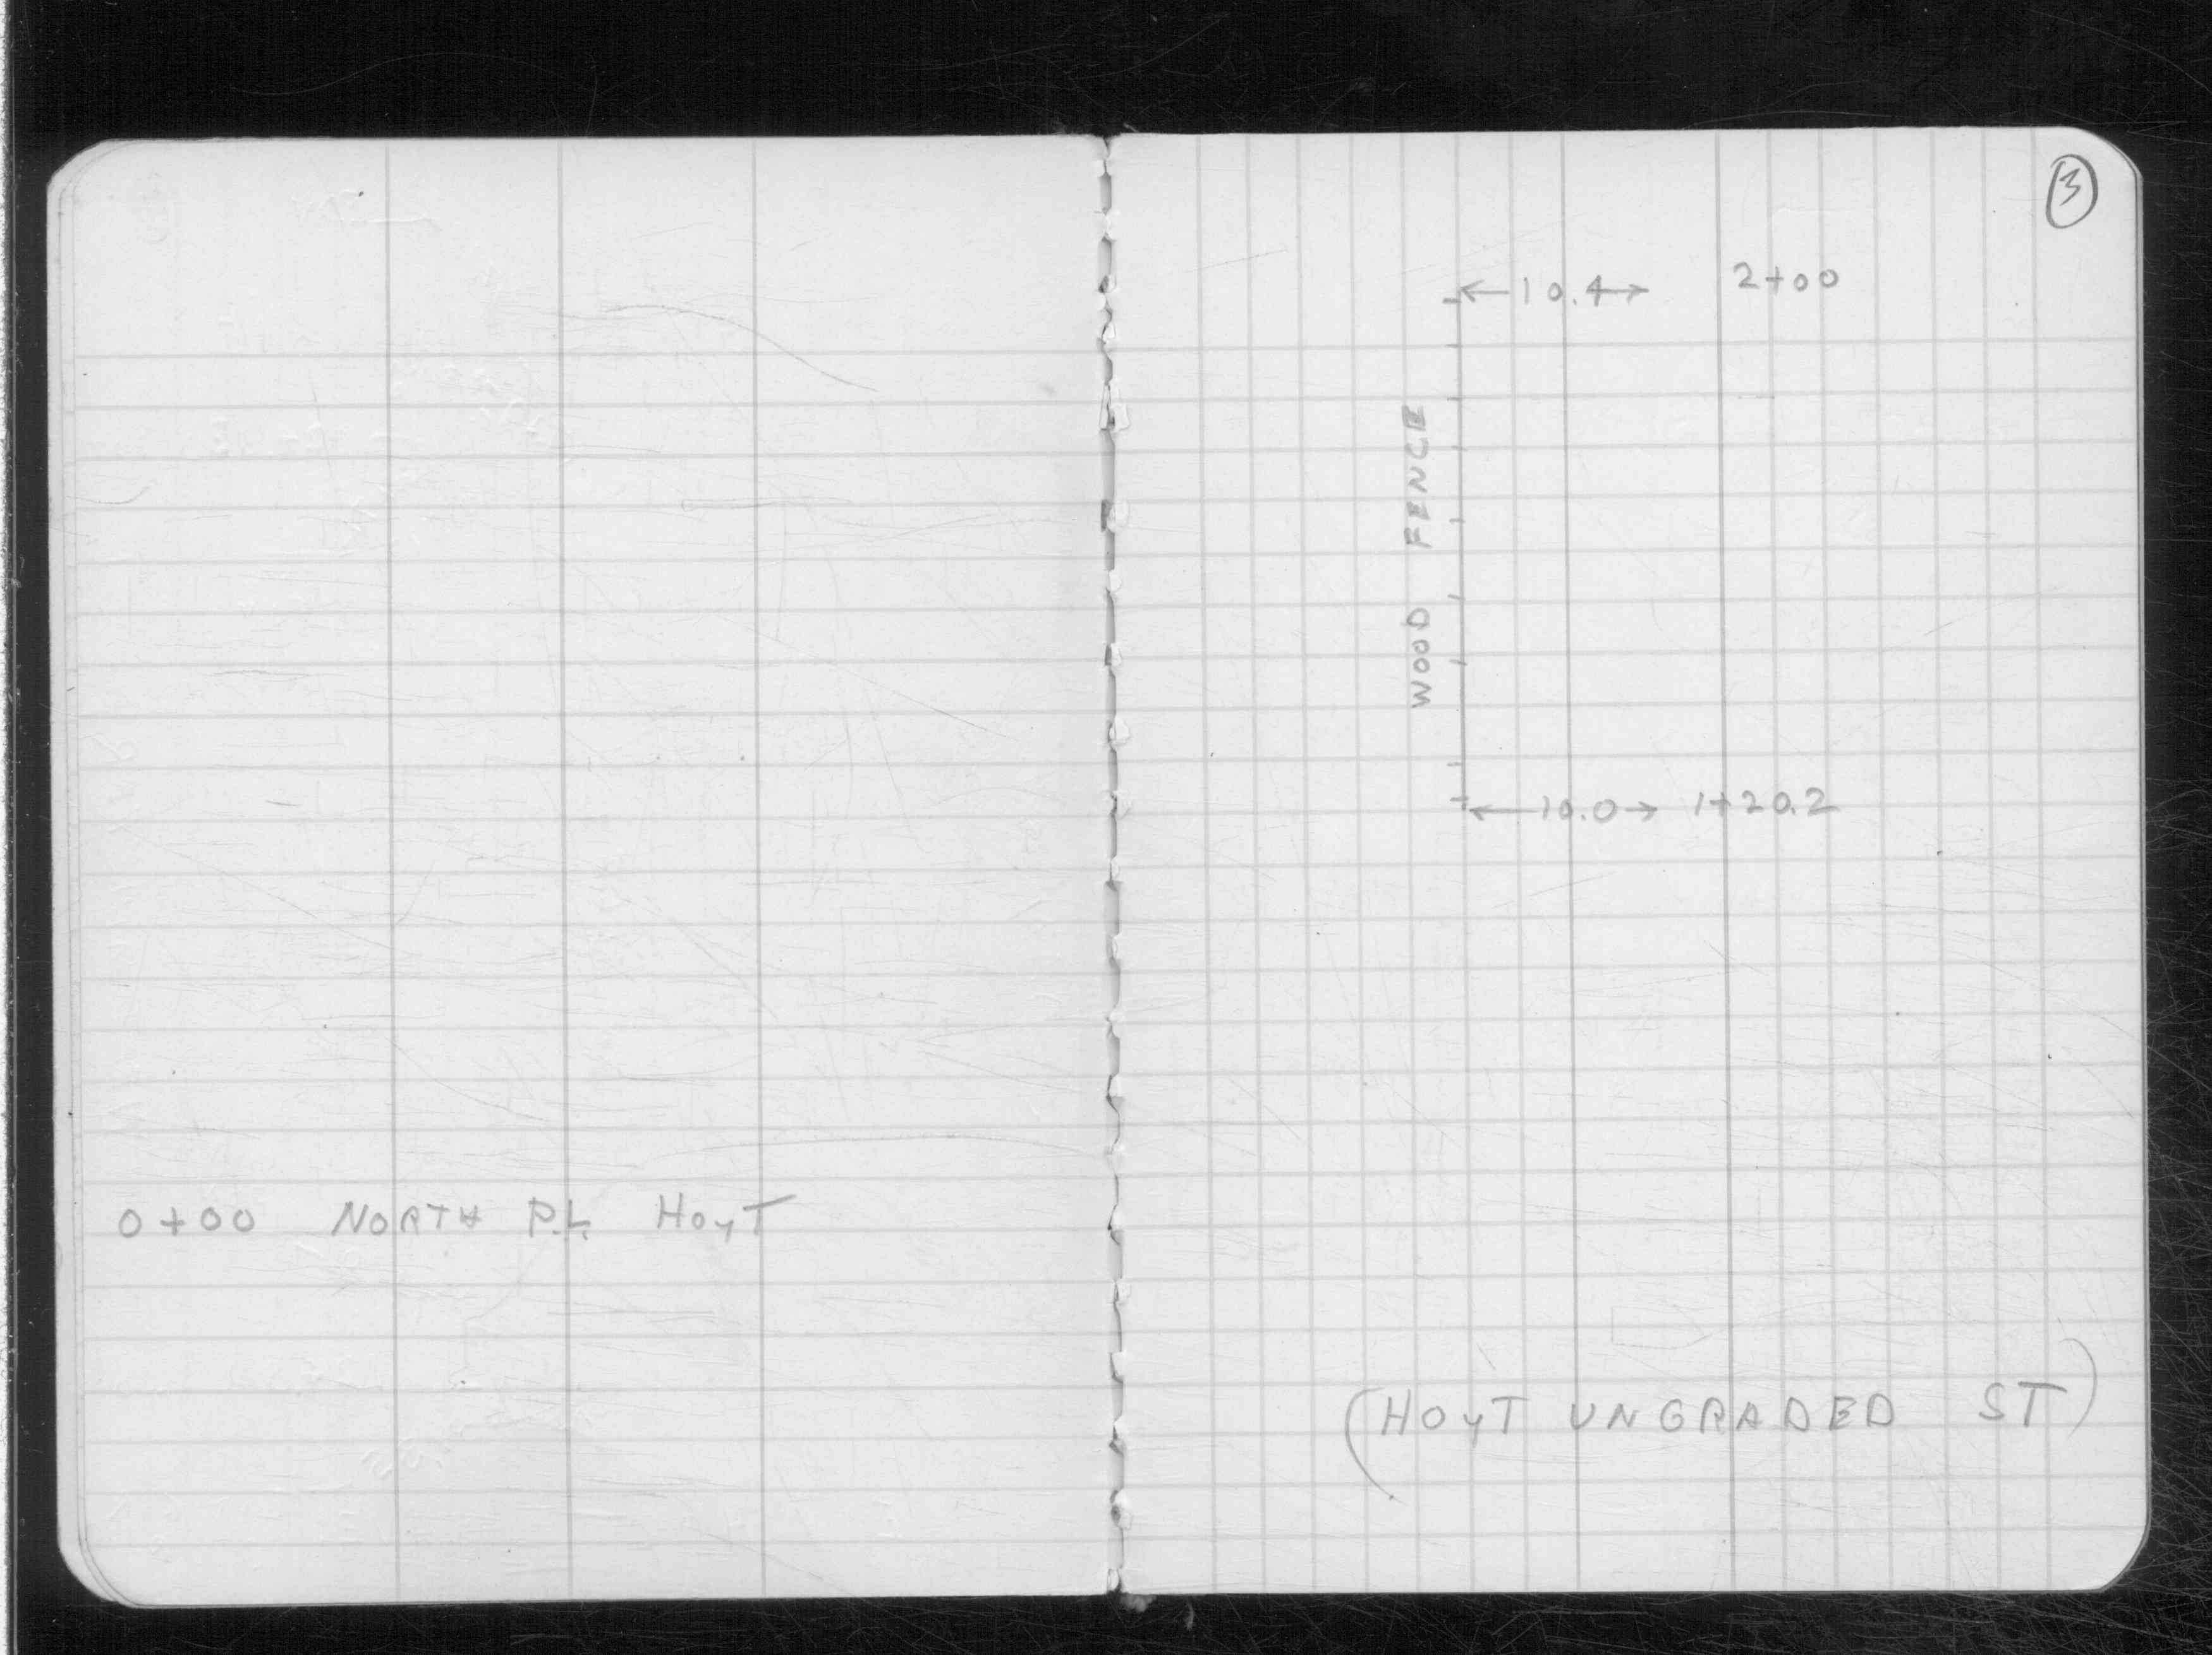 0+00 NORTH P.L. HOYT
3
10.4 2+00
WOOD FENCE
10.0 1+20.2
(HOYT UNGRADED ST)